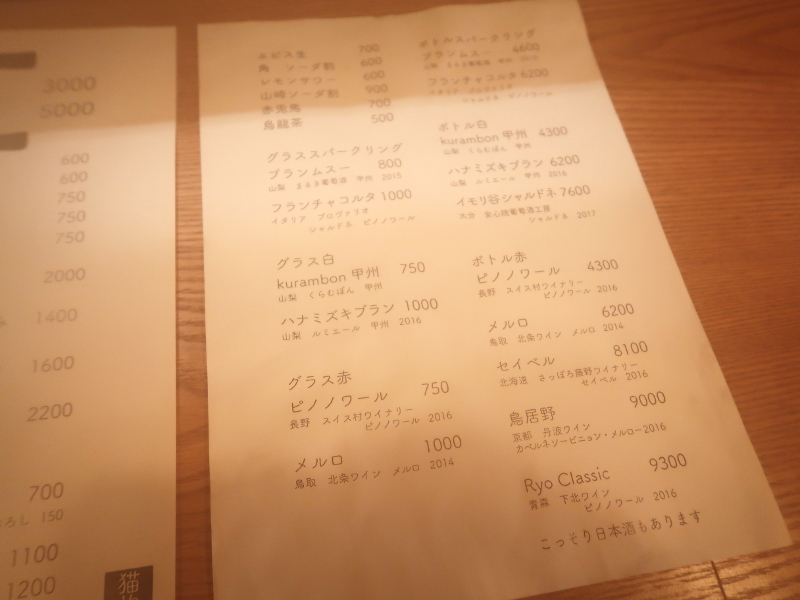 3000
5000
600
600
750
750
750
2000
1400
1600
2200
700
ろし 150
1100
1200
猫
ヱビス生 700
角 ソーダ割 600
レモンサワー 600
山崎ソーダ割 900
赤兎馬 700
烏龍茶 500
グラススパークリング
ブランムスー 800
山梨 まるき葡萄酒 甲州 2015
フランチャコルタ 1000
イタリア プロヴァリオ
シャルドネ ピノノワール
グラス白
kurambon 甲州 750
山梨 くらむぼん 甲州
ハナミズキブラン 1000
山梨 ルミエール 甲州 2016
グラス赤
ピノノワール 750
長野 スイス村ワイナリー
ピノノワール 2016
メルロ 1000
鳥取 北条ワイン メルロ 2014
ボトルスパークリング
ブランムスー 4600
山梨 まるき葡萄酒 甲州
フランチャコルタ 6200
イタリア プロヴァリオ
シャルドネ ピノノワール
ボトル白
kurambon 甲州 4300
山梨 くらむぼん 甲州
ハナミズキブラン 6200
山梨 ルミエール 甲州 2016
イモリ谷シャルドネ 7600
大分 安心院葡萄酒工房
シャルドネ 2017
ボトル赤
ピノノワール 4300
長野 スイス村ワイナリー
ピノノワール 2016
メルロ 6200
鳥取 北条ワイン メルロ 2014
セイベル 8100
北海道 さっぽろ藤野ワイナリー
セイベル 2016
鳥居野 9000
京都 丹波ワイン
カベルネソービニョン・メルロー2016
Ryo Classic 9300
青森 下北ワイン
ピノノワール 2016
こっそり日本酒もあります